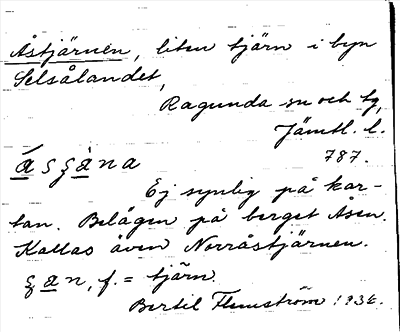 Åstjärnen, liten tjärn i byn
Selsålandet,
Ragunda sn och tg,
Jämtl. l.
787.
Ej synlig på kar-
tan. Belägen på berget Åsen.
Kallas även Norråstjärnen.
f. = tjärn.
Bertil Flemström 1936.